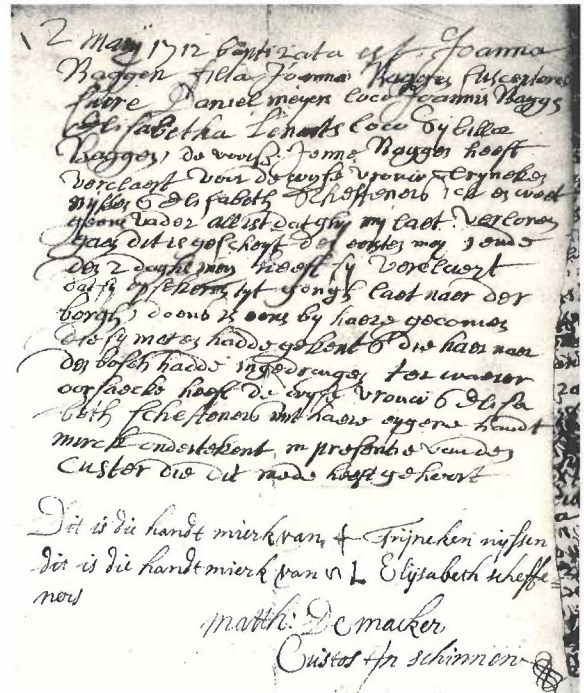 2 Maij 1712 baptizata est Joanna
Raggen filia Joanna Ragges susceptores
fuere Daniel meijers loco Joannis Ragge
Elisabetha Lenarts loco Sybilla
Ragges, de voors. Jenne Ragges heeft
verclaert voor de wijse vrouw Trijneken
nijssen & elisabeth Scheffeners ick en weet
geene vader all ist dat ghij mij laet verloren
gaen dit is gescheyt den eersten meij ende
den 2 daghe meij heeft sij verclaert
dat sij op sekeren tyt gongh laet naer der
borgh, doen is eene by haere gecomen
die sij niet en hadde gekent & die haer naer
den bosch hadde ingedronge ter waerer
oorsaecke heeft de wijse vrouw & Elisa
beth scheffeners met haere eygene handt
mirck onderteekent in presentie van den
Custer die dit mede heeft gehoort
Dit is die handt mierk van Trijneken nijssen
dit is die handt mierk van L Elijsabeth scheffe-
ners
matth: De macker
Custos In schinnen